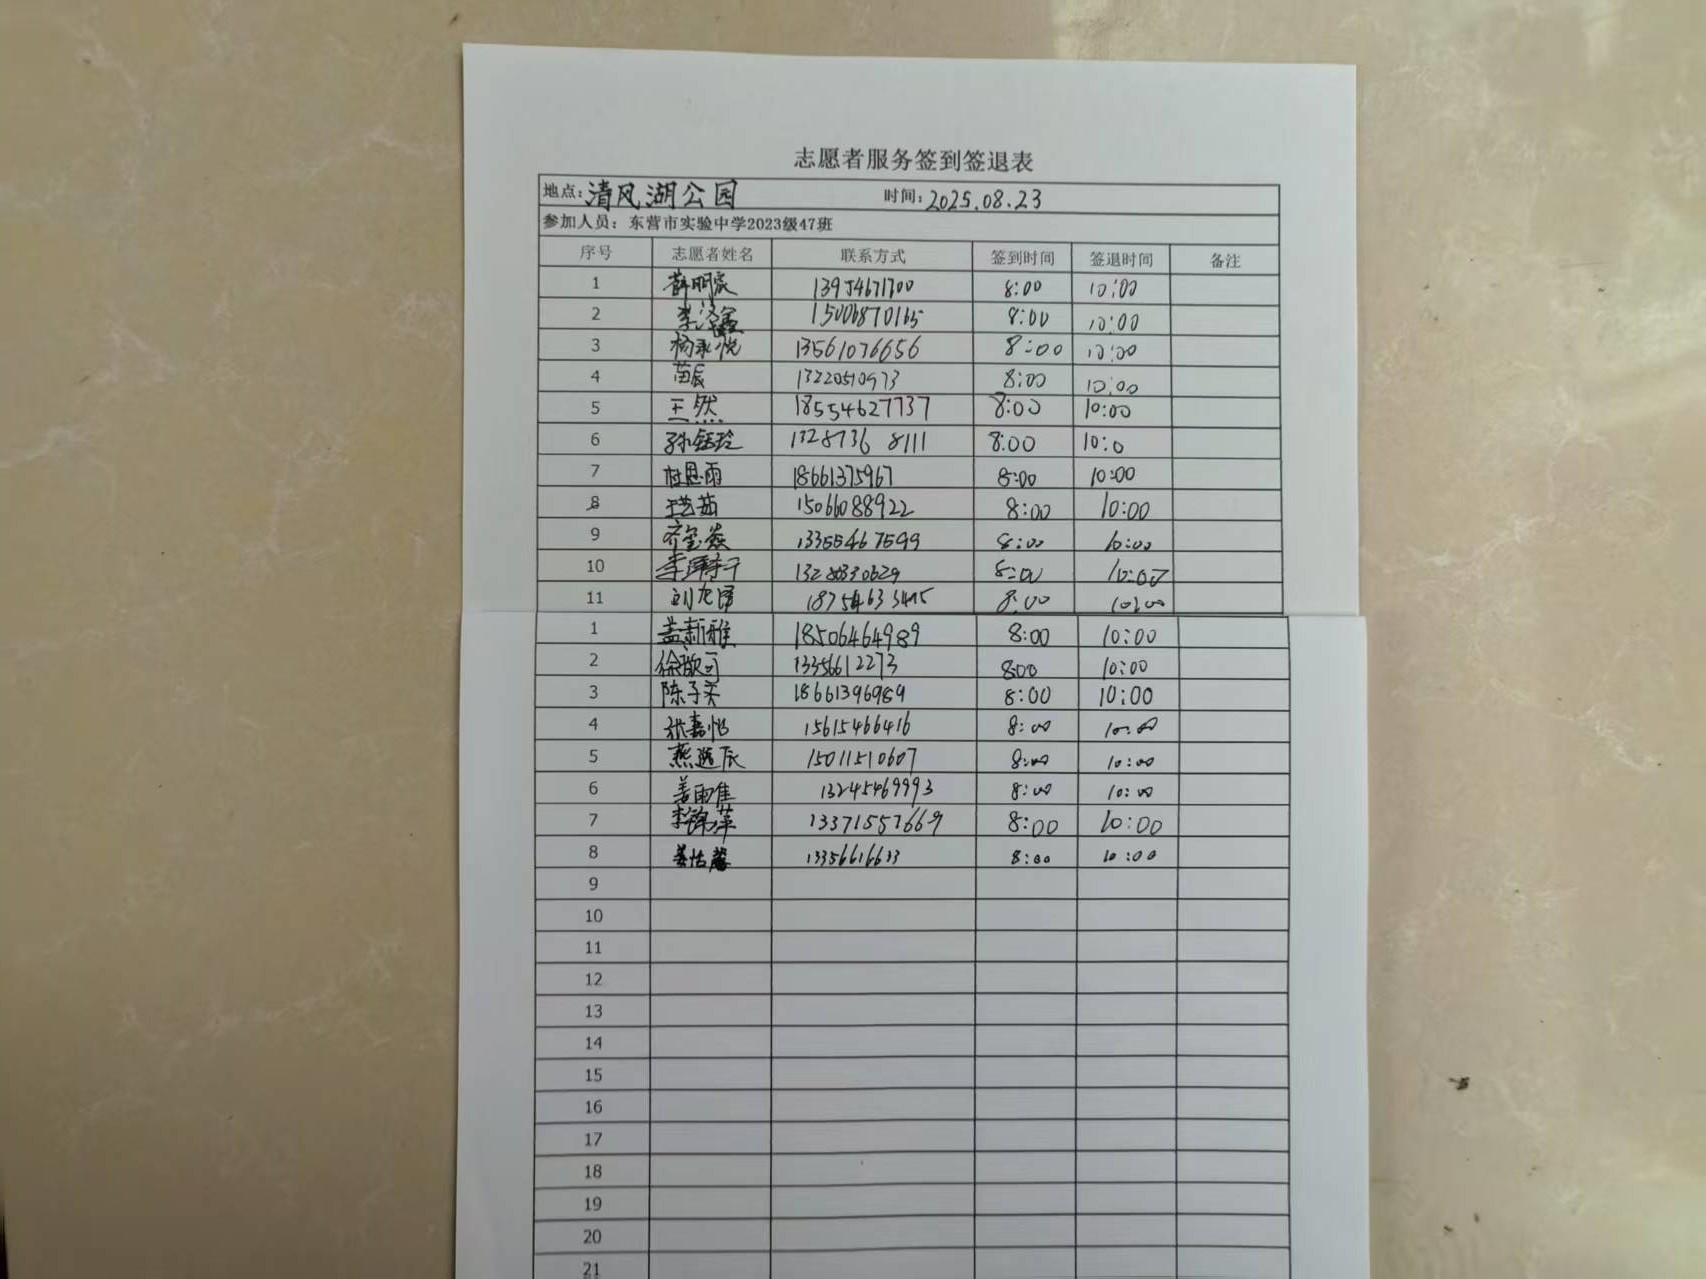 志愿者服务签到签退表
地点: 清风湖公园 时间: 2025.08.23
参加人员：东营市实验中学2023级47班
序号 志愿者姓名 联系方式 签到时间 签退时间 备注
1 薛明宸 13954671700 8:00 10:00
2 李泽鑫 15006870165 8:00 10:00
3 杨永悦 13561076656 8:00 10:00
4 苗辰 13220510973 8:00 10:00
5 王然 18554627737 8:00 10:00
6 孙钰玲 1328736 8111 8:00 10:0
7 杜思雨 18661375967 8:00 10:00
8 王艺茹 15066088922 8:00 10:00
9 齐玺焱 13355467599 8:00 10:00
10 13280330629 8:00 10:00
11 刘龙泽 8:00 10:00
1 盖新雅 18506464989 8:00 10:00
2 13356612273 800 10:00
3 陈子奕 18661396989 8:00 10:00
4 张嘉怡 15615466416 8:00 10:00
5 燕逸辰 15011510607 8:00 10:00
6 姜雨佳 13245469993 8:00 10:00
7 李锦萍 13371557669 8:00 10:00
8 姜怡馨 13356616633 8:00 10:00
9
10
11
12
13
14
15
16
17
18
19
20
21